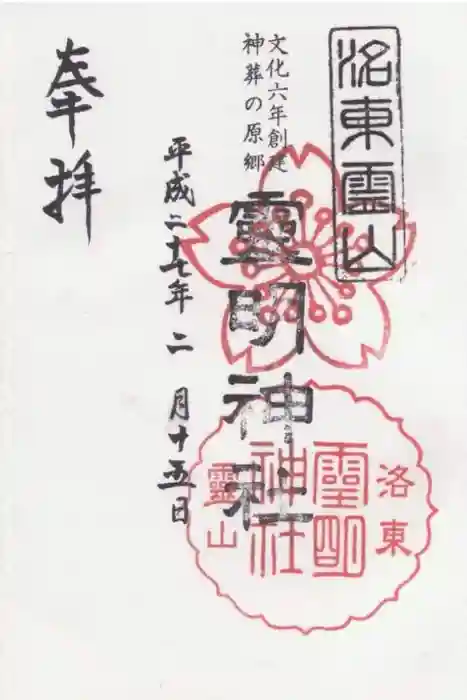 洛東霊山
文化六年創建
神葬の原郷
靈明神社
平成二十七年二月十五日
奉拝
洛東
靈明
神社
靈山